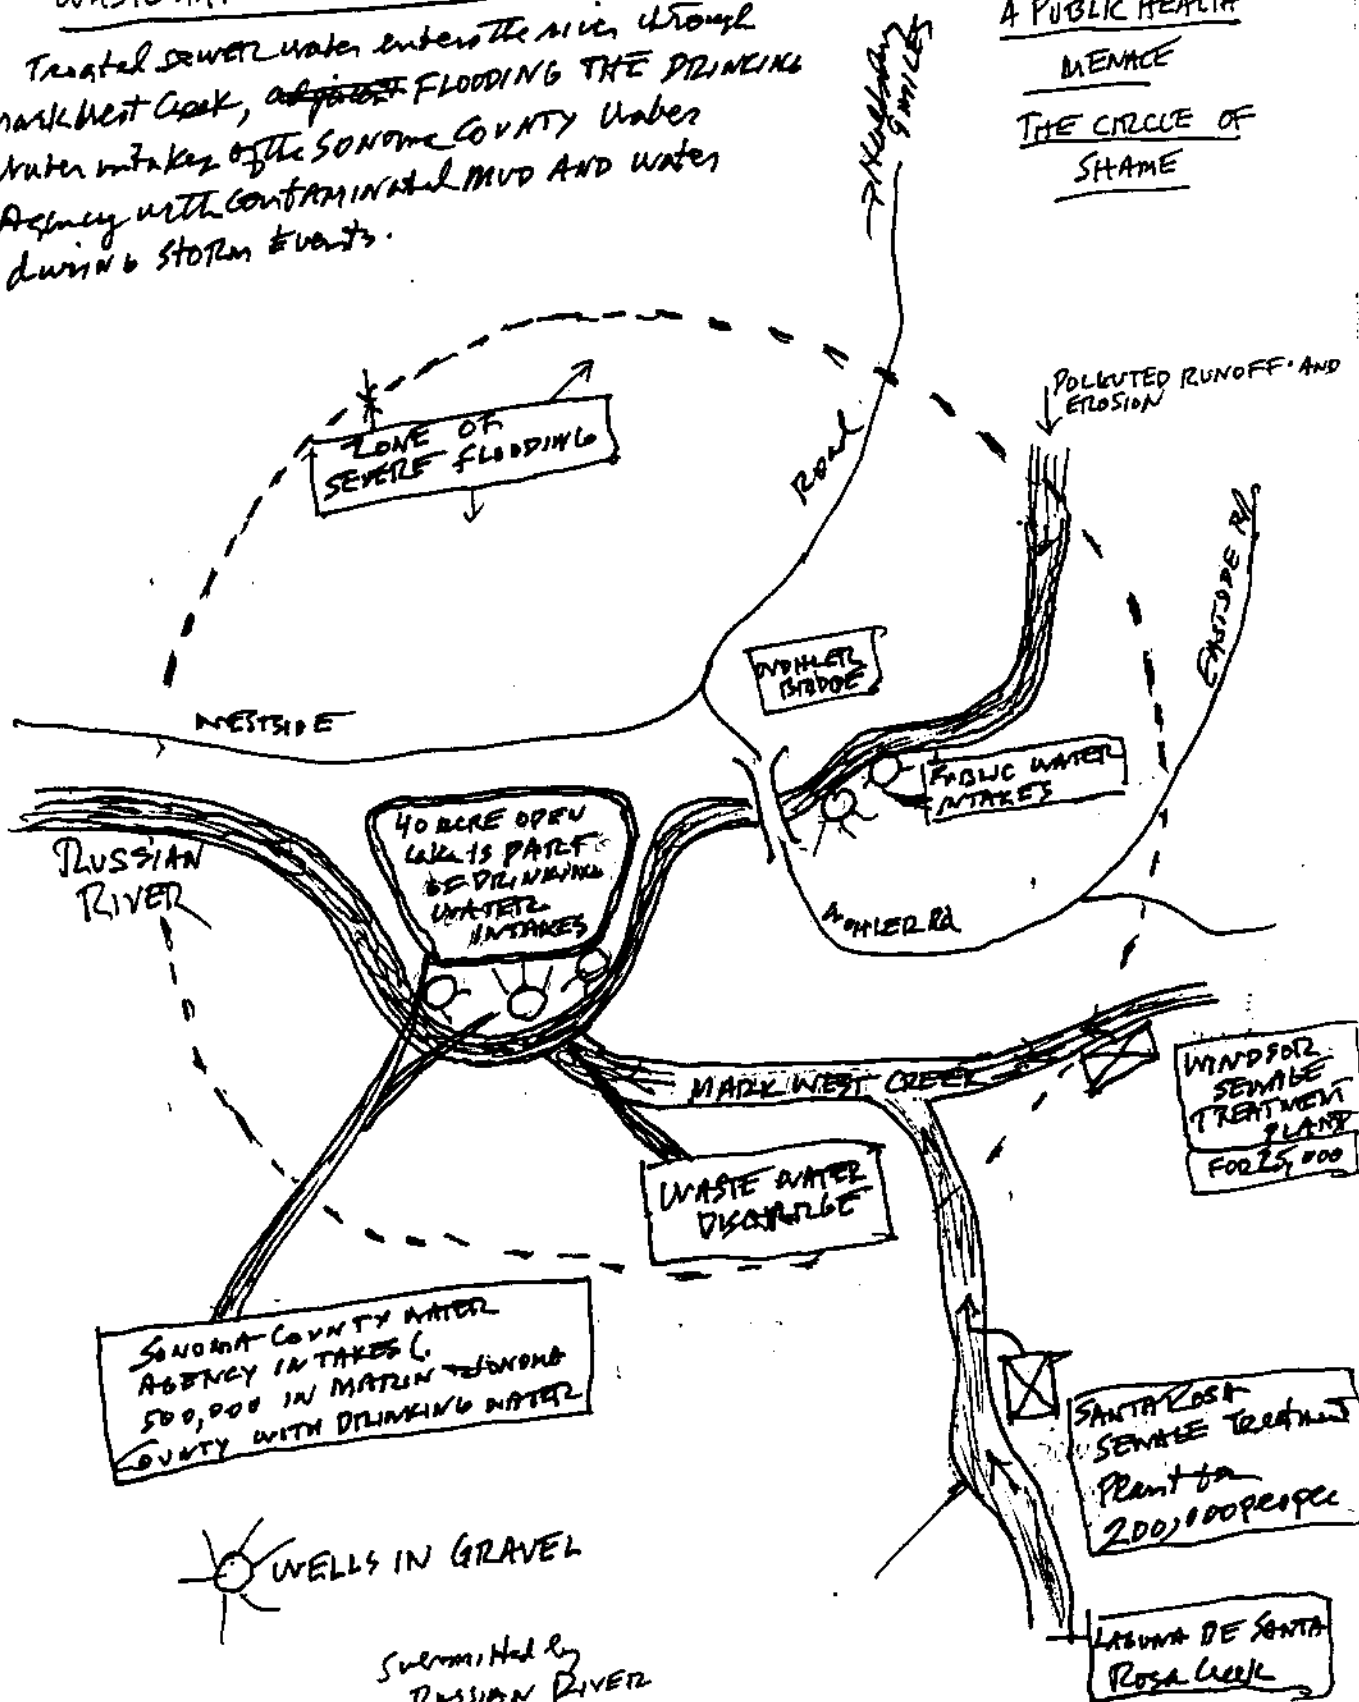 Treated SEWER water enters the river through
Mark West Creek, FLOODING THE DRINKING
Water intakes of the SONOMA COUNTY Water
Agency with CONTAMINated MUD AND water
during STORM Events.
A PUBLIC HEALTH
MENACE
THE CIRCLE OF
SHAME
→ Healdsburg
9 MILES
POLLUTED RUNOFF AND
EROSION
ZONE OF
SEVERE FLOODING
ROAD
EASTSIDE Rd
WOHLER
BRIDGE
WESTSIDE
PUBLIC WATER
INTAKES
40 ACRE OPEN
Lake is PART
OF DRINKING
WATER
INTAKES
RUSSIAN
RIVER
WOHLER Rd
MARK WEST CREEK
WINDSOR
SEWAGE
TREATMENT
PLANT
FOR 25,000
WASTE WATER
DISCHARGE
SONOMA COUNTY WATER
AGENCY INTAKES (.
500,000 IN MARIN - SONOMA
COUNTY WITH DRINKING WATER
SANTA ROSA
SEWAGE Treatment
Plant for
200,000 people
WELLS IN GRAVEL
LAGUNA DE SANTA
Rosa Creek
Submitted by
RUSSIAN RIVER